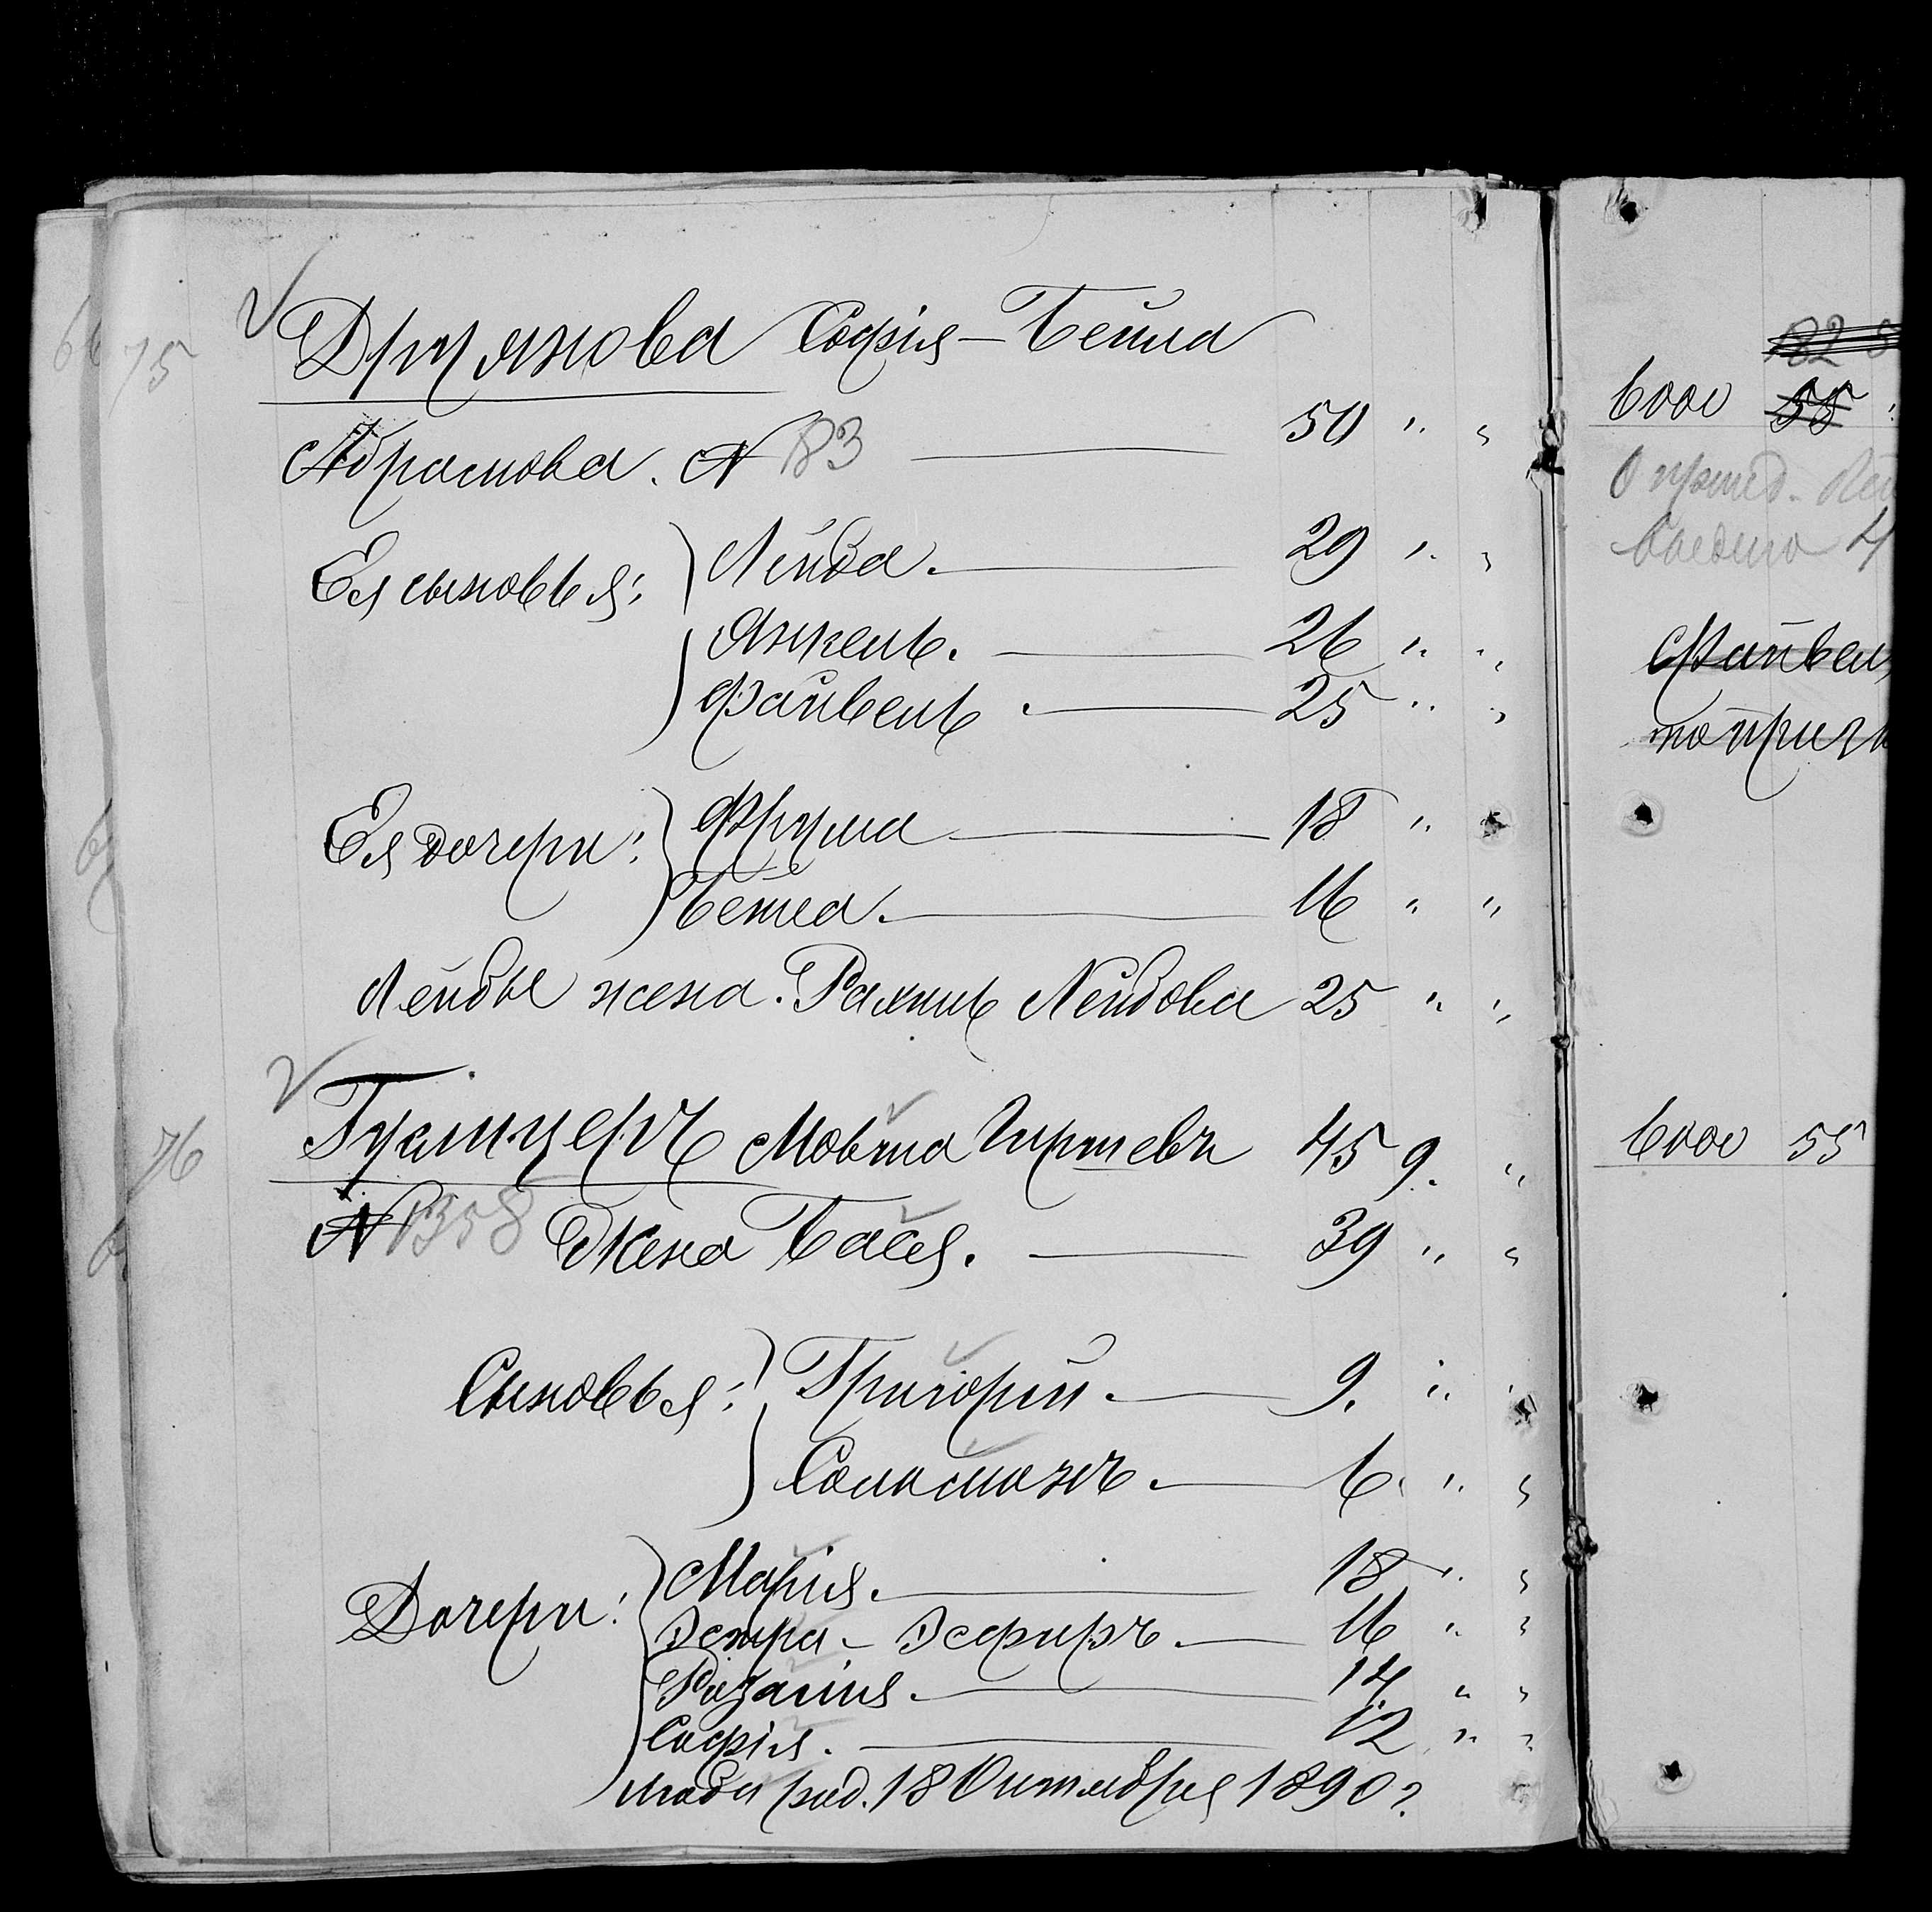 75 Друянова Софія-Бейла
Абрамова. № 83 50 " "
Ея сыновья: Лейба. 29 " "
Янкель. 26 " "
Файвель. 25 " "
Ея дочери: Фрума 18 " "
Бейла. 16 " "
Лейбы жена. Рахиль Лейбова 25 " "
76 Мовша Гиршевъ 45 9. "
№ 1358 Жена Бася. 39 " "
Сыновья: Григорій. 9. " "
Соломонъ. 6. " "
Дочери: Марія. 18 " "
Эстра-Эсфирь. 16 " "
Розалія. 14 " "
Софія. 12 " "
род. 18 Октября 1890 г.
6000 55
Файвел
6000 55